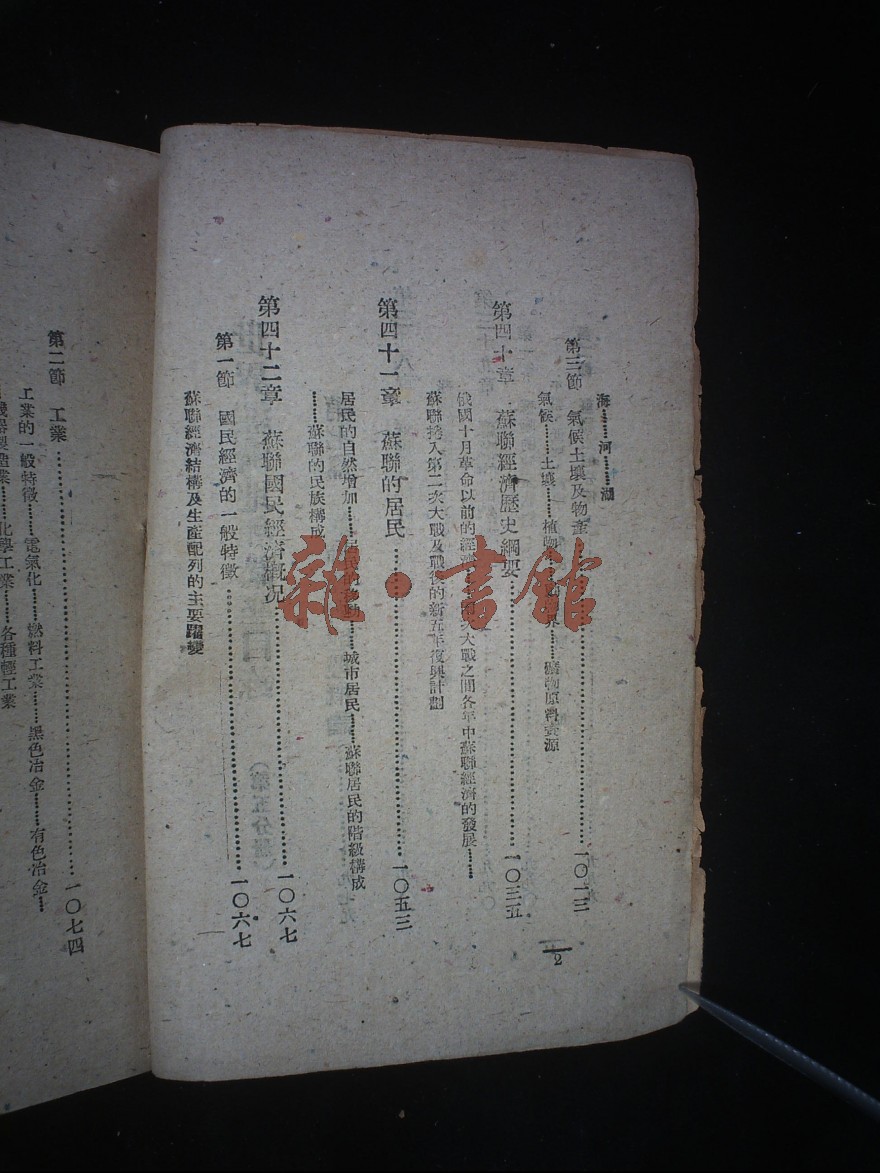 海………河………湖
第三節 氣候土壤及物產………一〇一三
氣候………土壤………植物………礦物原料資源
第四十章 蘇聯經濟歷史綱要………一〇三五
俄國十月革命以前的經濟………大戰之間各年中蘇聯經濟的發展………
蘇聯捲入第二次大戰及戰後的新五年復興計劃
第四十一章 蘇聯的居民………一〇五三
居民的自然增加………居民的移動………城市居民………蘇聯居民的階級構成
………蘇聯的民族構成
第四十二章 蘇聯國民經濟概况………一〇六七
第一節 國民經濟的一般特徵………一〇六七
蘇聯經濟結構及生產配列的主要躍變
2
第二節 工業………一〇七四
工業的一般特徵………電氣化………燃料工業………黑色冶金………有色冶金………
機器製造業………化學工業………各種輕工業
雜·書館